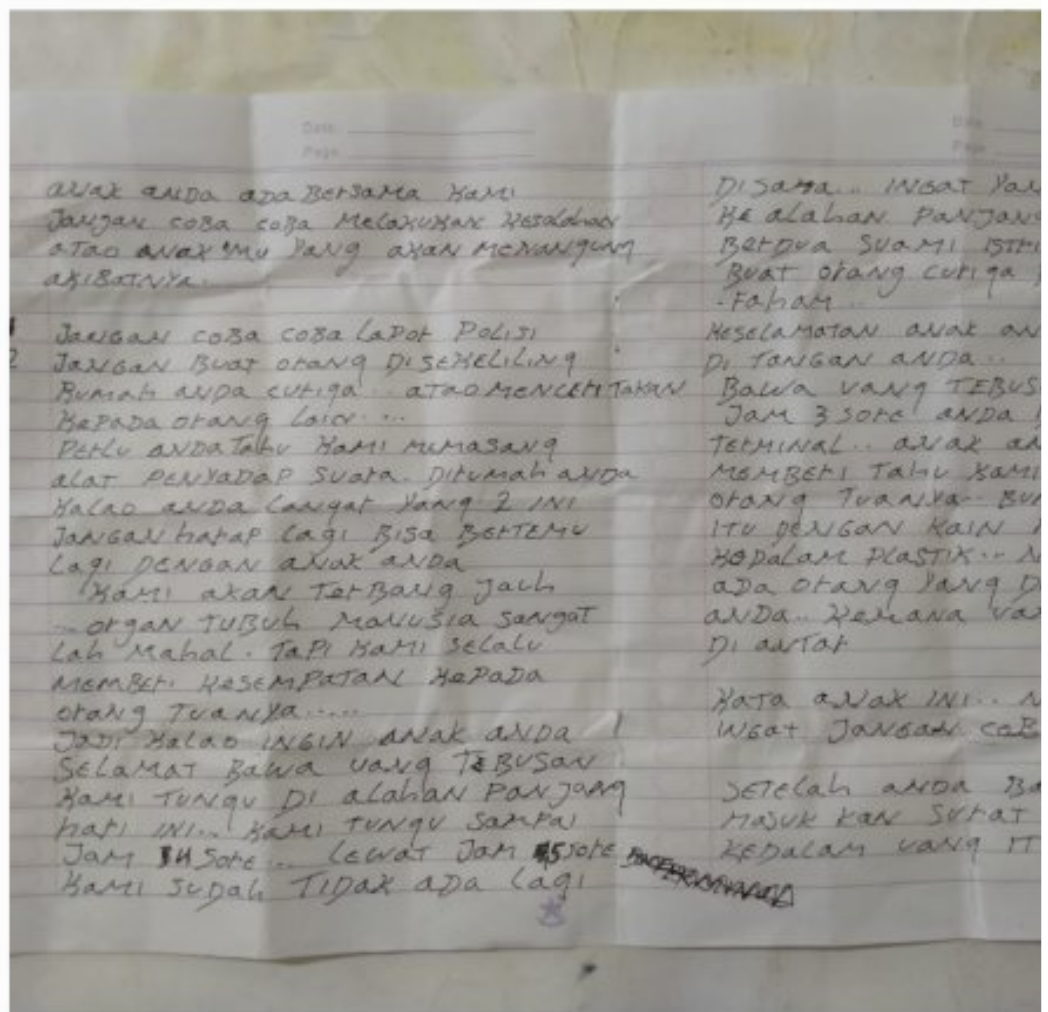 Date:
Page
anak anda ada Bersama Kami
Jangan coBa coBa Melakukan Kesalahan
atao anak mu yang akan Menangung
akibatnya.
1 Jangan coBa coBa Lapor Polisi
2 Jangan Buat orang Disekeliling
Rumah anda curiga.. atao Menceritakan
Kepada orang Lain....
Perlu anda Tahu Kami Mimasang
alat Penyadap Suara. Dirumah anda
Kalao anda Langar yang 2 ini
Jangan harap Lagi Bisa Bertemu
Lagi Dengan anak anda
Kami akan Terbang Jauh
..organ Tubuh Manusia Sangat
Lah Mahal. Tapi Kami Selalu
Memberi Kesempatan Kepada
orang Tuanya.....
Jadi Kalao ingin anak anda
Selamat Bawa uang Tebusan
Kami Tungu Di alahan Panjang
hari ini... Kami Tungu Sampai
Jam 4 Sore... Lewat Jam 5 Sore
Kami Sudah Tidak ada Lagi
Date
Page
Disana... ingat
Ke alahan Panjang
Berdua Suami
Buat orang curiga
-Faham..
Keselamatan anak
Di Tangan anda..
Bawa uang
Jam 3 Sore anda
Terminal.. anak
Memberi Tahu Kami
orang Tuanya..
iTu Dengan Kain
Kedalam Plastik...
ada orang yang
anda.. Kemana
Di antar
Kata anak ini..
ingat Jangan
Setelah anda
Masuk kan Surat
Kedalam uang